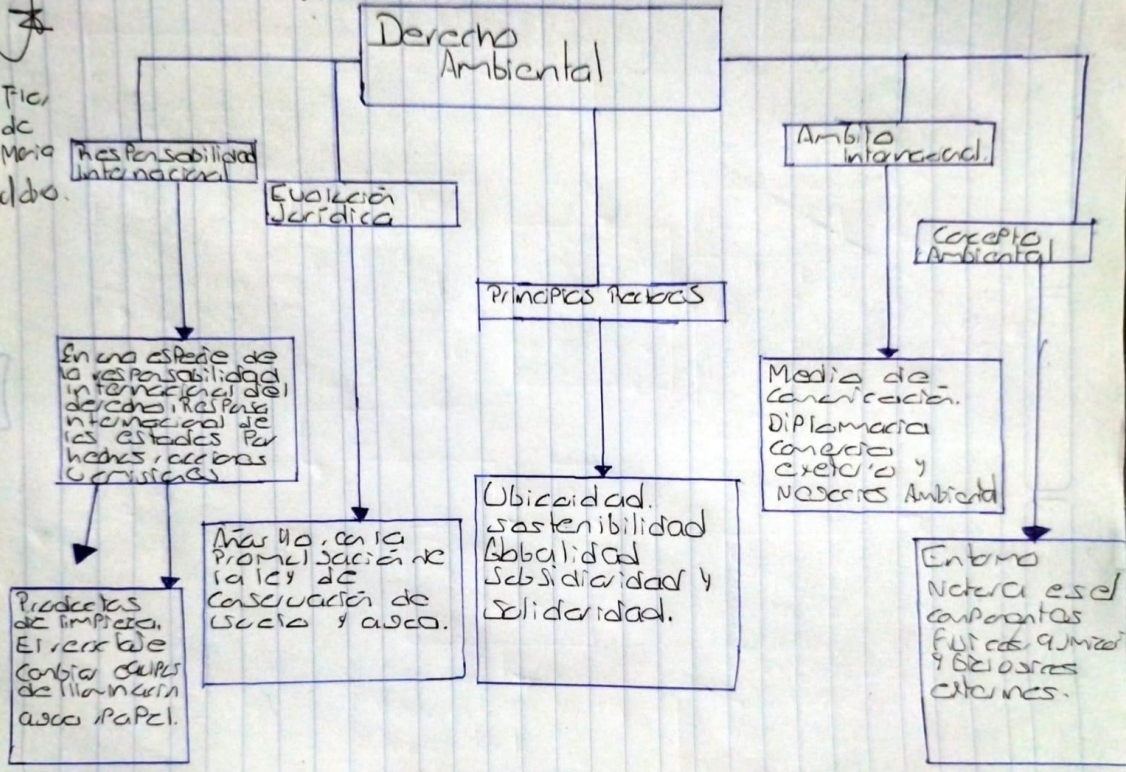 Derecho
Ambiental
de
Responsabilidad
Internacional
Evolución
Jurídica
Principios Rectores
Ambito
Internacional.
Concepto
Ambiental
En una especie de
la responsabilidad
internacional del
derecho.
internacional de
los estados por
hechos, acciones
Productos
de limpieza.
El reciclaje
cambiar equipos
de iluminación
agua, papel.
Años 40, con la
Promulgación de
la ley de
conservación de
suelo y agua.
Ubicuidad.
sostenibilidad
Globalidad
Subsidiaridad y
Solidaridad.
Medio de
comunicación.
Diplomacia
comercio
exterior y
Ambiental
Entorno
Natural es el
componentes
físicos, químicos
y biológicos
externos.